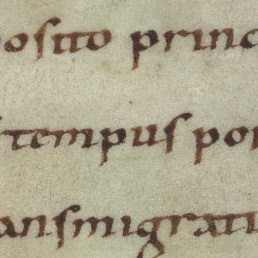 osito princ
tempus por
ansmigrati